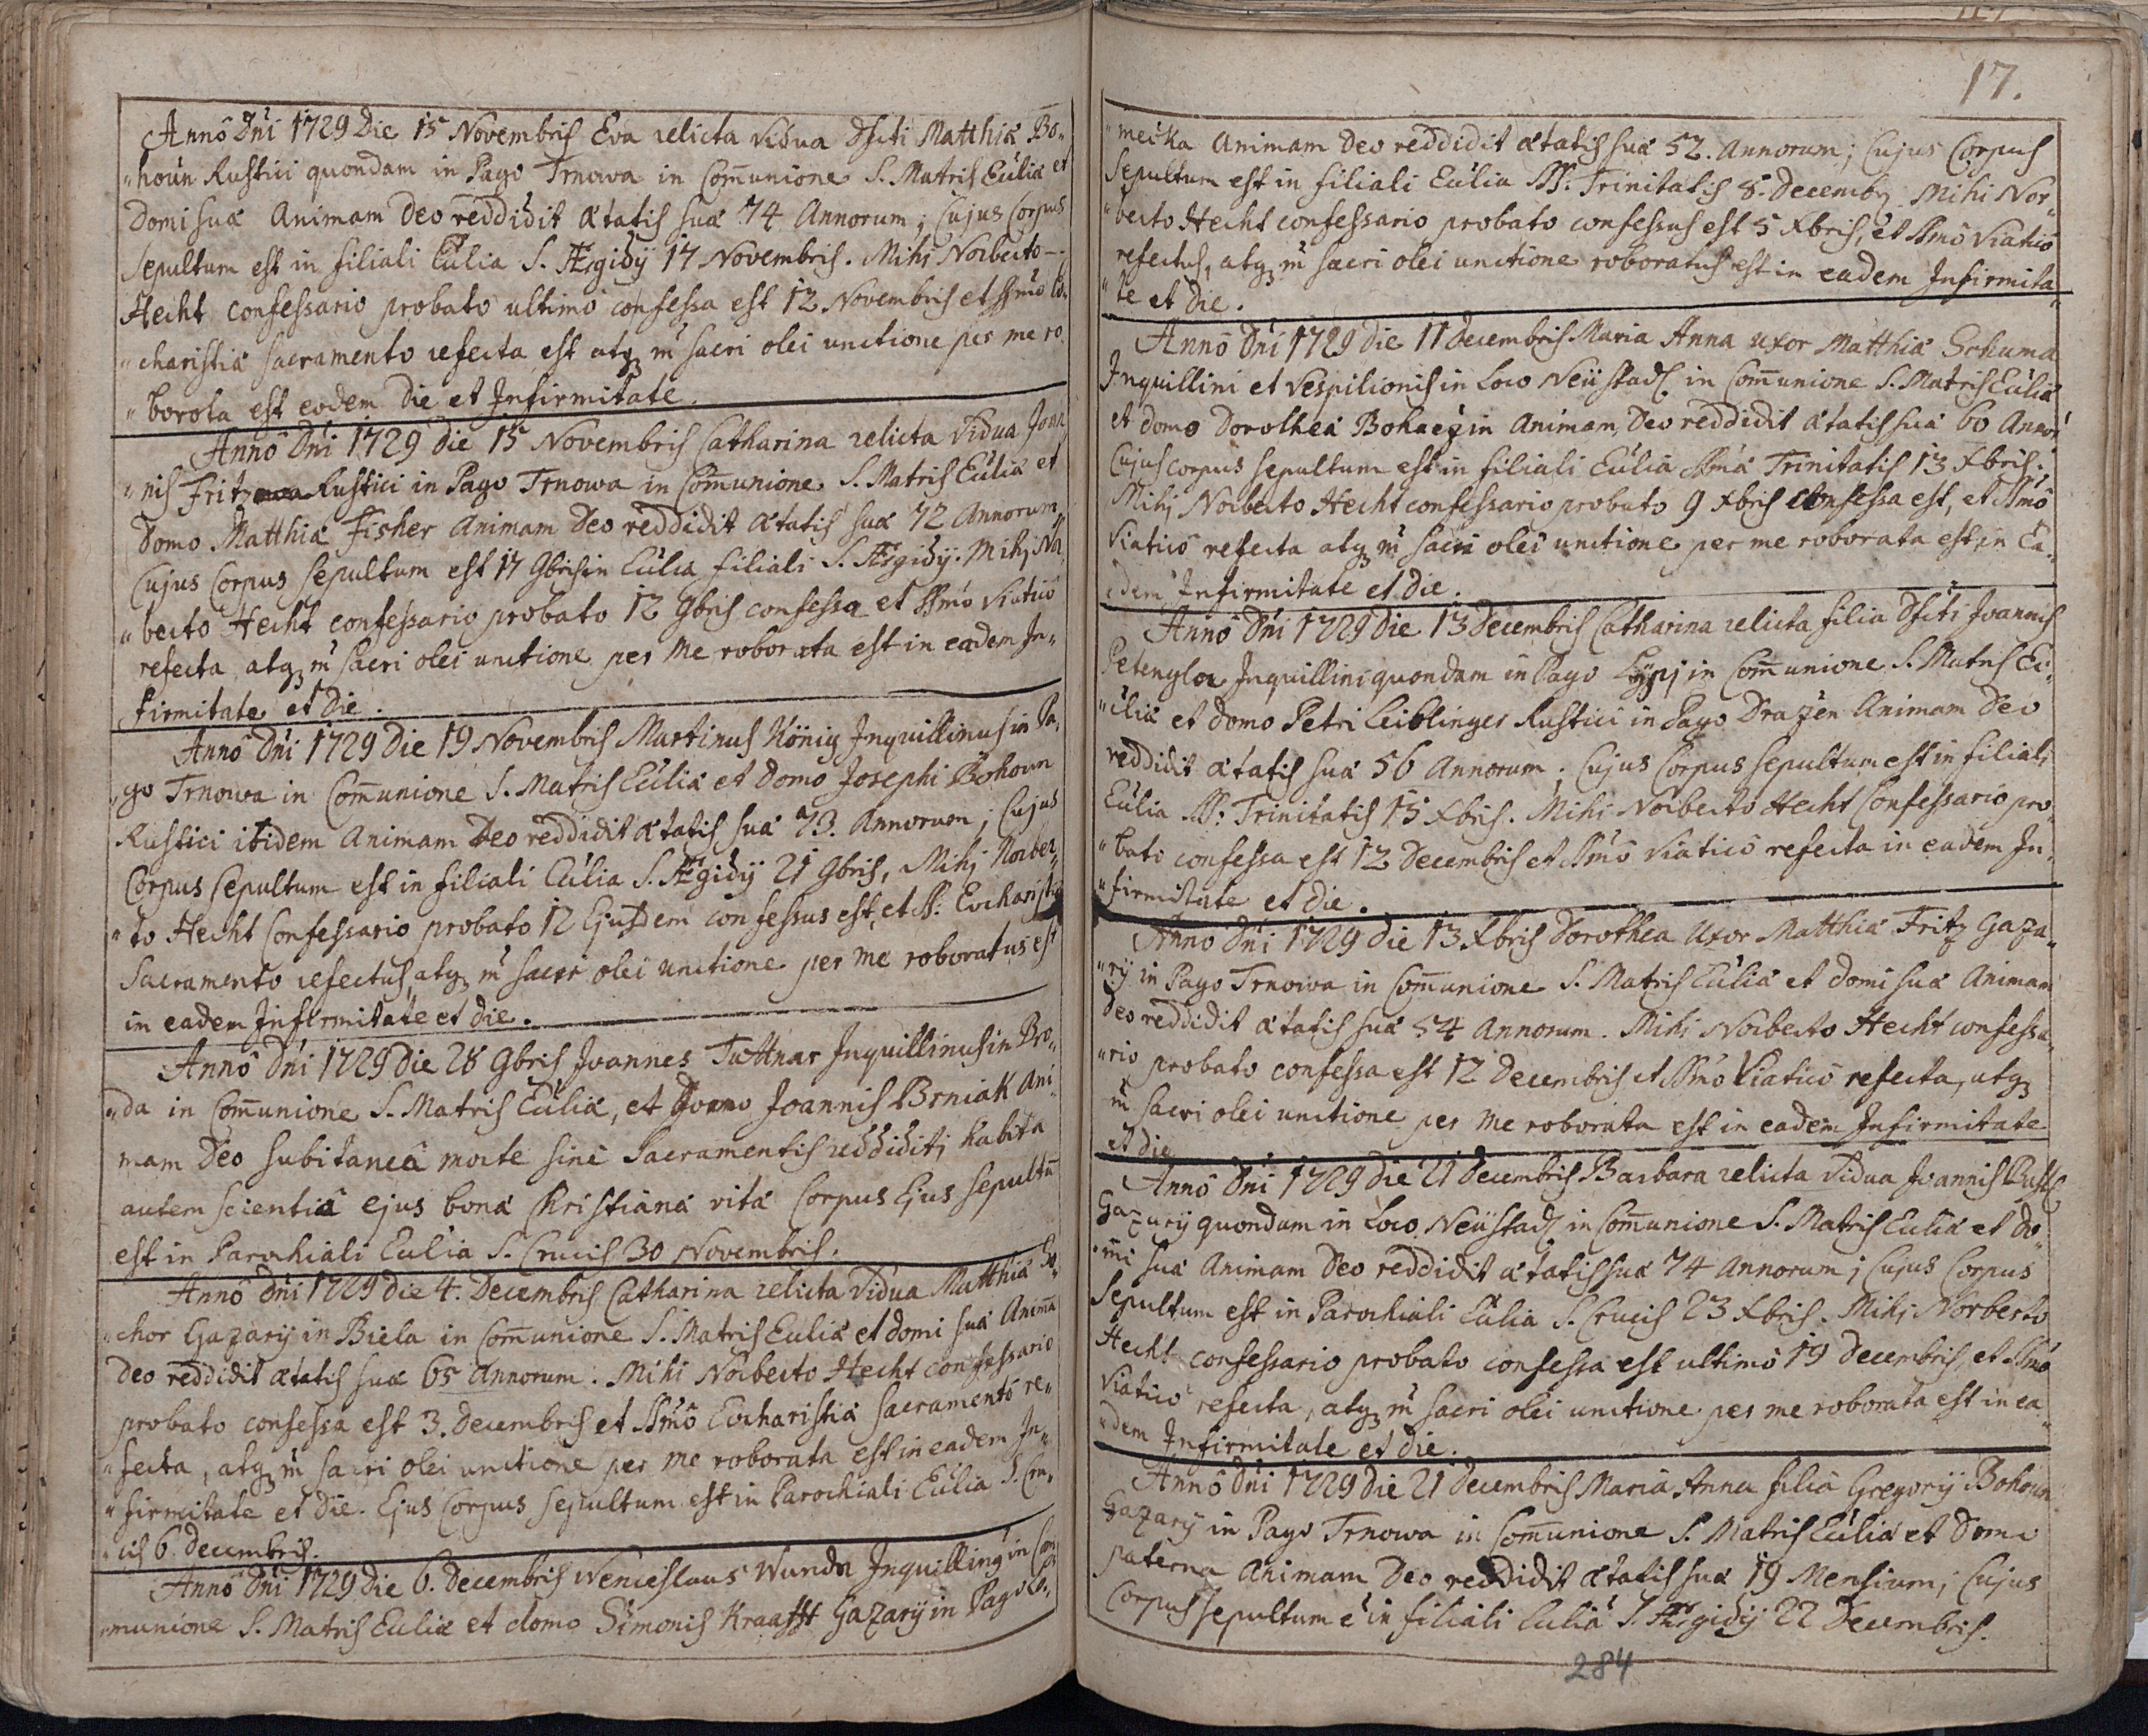 Anno Dni 1729 Die 15 Novembris Eva relicta Vidua Dfcti Matthiæ Bo„
„houn Rustici quondam in Pago Trnowa in Com̄unione S. Matris Eccliæ et
Domi suæ Animam Deo reddidit ætatis suæ 74 Annorum; Cujus Corpus
Sepultum est in filiali Ecclia S. Ægidij 17 Novembris. Mihi Norberto
Hecht confessario probato ultimo confessa est 12 Novembris et SSmo Eu„
„charistiæ sacramento refecta est atq; in sacri olei unctione per me ro„
„borota est eodem die et Infirmitate.
Anno Dni 1729 die 15 Novembris Catharina relicta Vidua Joan„
„nis Fritz Rustici in Pago Trnowa in Com̄unione S. Matris Eccliæ et
Domo Matthiæ Fisher Animam Deo reddidit ætatis suæ 72 Annorum,
Cujus Corpus sepultum est 17 9bris in Ecclia filiali S. Ægidij. Mihi Nor„
„berto Hecht confessario probato 12 9bris confessa et SSmo Viatico
refecta, atq; in sacri olei unctione per me roborata est in eadem In„
firmitate et die.
Anno Dni 1729 Die 19 Novembris Martinus König Inquillinus in Pa„
„go Trnowa in Com̄unione S. Matris Eccliæ et domo Josephi Bohoun
Rustici ibidem Animam Deo reddidit ætatis suæ 73. Annorum; Cujus
Corpus sepultum est in filiali Ecclia S. Ægidij 21 9bris, Mihi Norber„
„to Hecht Confessario probato 12 Ejusdem confessus est, et SS: Eucharistiæ
Sacramento refectus, atq; in sacri olei unctione per me roboratus est
in eadem Infirmitate et die.
Anno Dni 1729 Die 28 9bris Joannes Tuttnar Inquillinus in Bro„
„da in Com̄unione S. Matris Eccliæ, et Domo Joannis Brniak Ani„
mam Deo subitaneâ morte sine Sacramentis reddidit; habita
autem scientiâ ejus bonæ Christianæ vitæ Corpus Ejus sepultū
est in Parochiali Ecclia S. Crucis 30 Novembris.
Anno Dni 1729 die 4. Decembris Catharina relicta Vidua Matthiæ
„chor Gazarij in Biela in Com̄unione S. Matris Eccliæ et domi suæ Animā
Deo reddidit ætatis suæ 65 Annorum. Mihi Norberto Hecht confessario
probato confessa est 3. Decembris et SSmo Eucharistiæ Sacramento re„
„fecta, atq; in sacri olei unctione per me roborata est in eadem In„
„firmitate et die. Ejus Corpus sepultum est in Parochiali Ecclia S. Cru„
„cis 6 decembris.
Anno Dni 1729 die 6. Decembris Wenceslaus Wunda Inquilling in Com
„munione S. Matris Eccliæ et domo Simonis Kraafft Gazarij in Pago Lo„
17.
„meczka Animam Deo reddidit ætatis suæ 52. Annorum; Cujus Corpus
Sepultum est in filiali Ecclia SS. Trinitatis 8. Decemb; Mihi Nor„
„berto Hecht confessario probato confessus est 5 Xbris, et SSmo Viatico
refectus, atq; in sacri olei unctione roboratus est in eadem Infirmita„
„te et die.
Anno Dni 1729 die 11 Decembris Maria Anna uxor Matthiæ Schuma
Inquillini et Vespilionis in Loco Neüstadl in Com̄unione S. Matris Eccliæ
et domo Dorotheæ Animam Deo reddidit ætatis suæ 60 Annor
Cujus corpus sepultum est in filiali Ecclia SSmæ Trinitatis 13 Xbris.
Mihi Norberto Hecht confessario probato 9 Xbris confessa est, et SSmo
Viatico refecta atq; in sacri olei unctione per me roborata est in Ea„
„dem Infirmitate et die.
Anno Dni 1729 die 13 Decembris Catharina relicta filia Dfcti Joannis
Petengloa Inquillini quondam in Pago Lypj in Com̄unione S. Matris Ec„
„cliæ et domo Petri Leiblinger Rustici in Pago Drazen Animam Deo
reddidit ætatis suæ 56 Annorum. Cujus Corpus sepultum est in filiali
Ecclia SS: Trinitatis 15 Xbris. Mihi Norberto Hecht Confessario pro„
„bato confessa est 12 Decembris et SSmo Viatico refecta in eadem In„
„firmitate et die.
Anno Dni 1729 die 13 Xbris Dorothea Uxor Matthiæ Fritz Gaza„
„rij in Pago Trnowa in Com̄unione S. Matris Eccliæ et domi suæ Animam
Deo reddidit ætatis suæ 54 Annorum. Mihi Norberto Hecht confessa„
„rio probato confessa est 12 Decembris et SSmo Viatico refecta, atq;
in sacri olei unctione per me roborata est in eadem Infirmitate
et die
Anno Dni 1729 die 21 Decembris Barbara relicta Vidua Joannis
Gazarij quondam in Loco Neüstadl in Com̄unione S. Matris Eccliæ et do„
„mi suæ Animam Deo reddidit ætatis suæ 74 Annorum; Cujus Corpus
Sepultum est in Parochiali Ecclia S. Crucis 23 Xbris. Mihi Norberto
Hecht confessario probato confessa est ultimo 19 Decembris, et SSmo
Viatico refecta, atq; in sacri olei unctione per me roborata est in ea„
„dem Infirmitate et die.
Anno Dni 1729 die 21 Decembris Maria Anna filia Gregorij Bohoun
Gazarij in Pago Trnowa in Com̄unione S. Matris Eccliæ et Domo
paterna Animam Deo reddidit ætatis suæ 19 Mensium; Cujus
Corpus sepultum ē in filiali Ecclia S. Ægidij 22 Decembris.
284